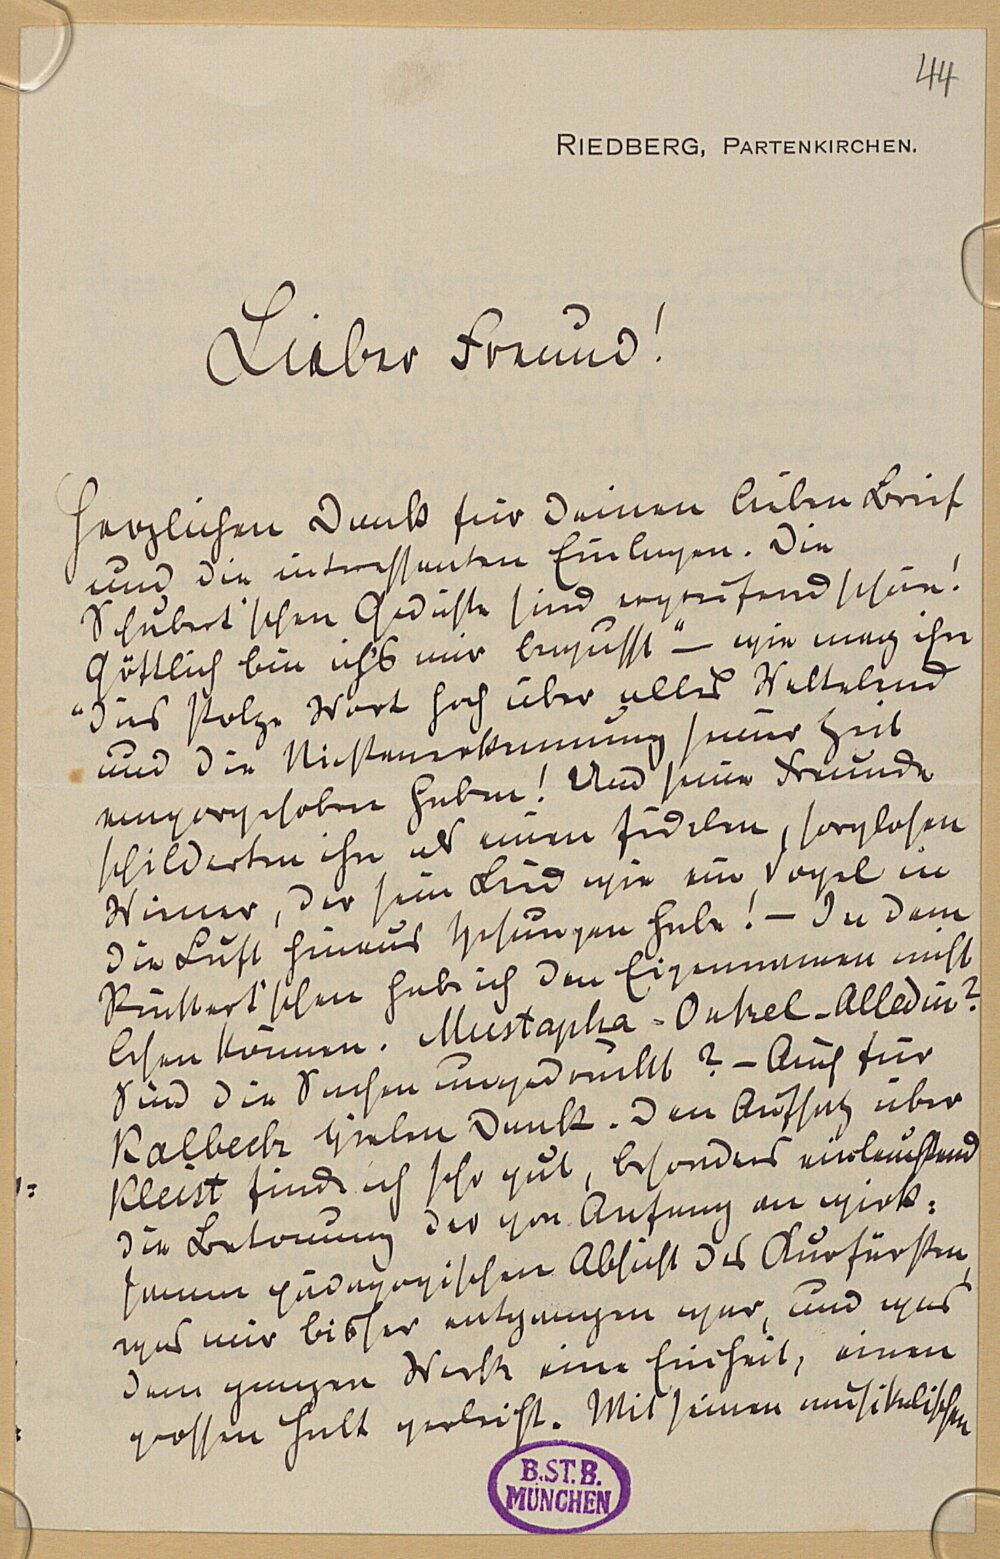 44
RIEDBERG, PARTENKIRCHEN.
Lieber Freund!
Herzlichen Dank für Deinen lieben Brief
und die intressanten Einlagen. Die
Schubert'schen Gedichte sind ergreifend schön!
"Göttlich bin ich's mir bewusst" – wie mag ihn
dies stolze Wort hoch über alles Weltelend
und die Nichtanerkennung seiner Zeit
emporgehoben haben! Und seine Freunde
schilderten ihn als einen fidelen, sorglosen
Wiener, der sein Lied wie ein Vogel in
die Luft hinaus gesungen habe! – In dem
Rückert'schen hab ich den Eigennamen nicht
lesen können. Mustapha-Onkel-Alledin?
Sind die Sachen ungedruckt? – Auch für
Kalbeck vielen Dank. Den Aufsatz über
Kleist finde ich sehr gut, besonders einleuchtend
die Betonung der von Anfang an wirk=
samen pädagogischen Absicht des Kurfürsten,
was mir bisher entgangen war, und was
dem ganzen Werk eine Einheit, einen
grossen Halt verleiht. Mit seinen musikalischen
B.ST.B.
MÜNCHEN